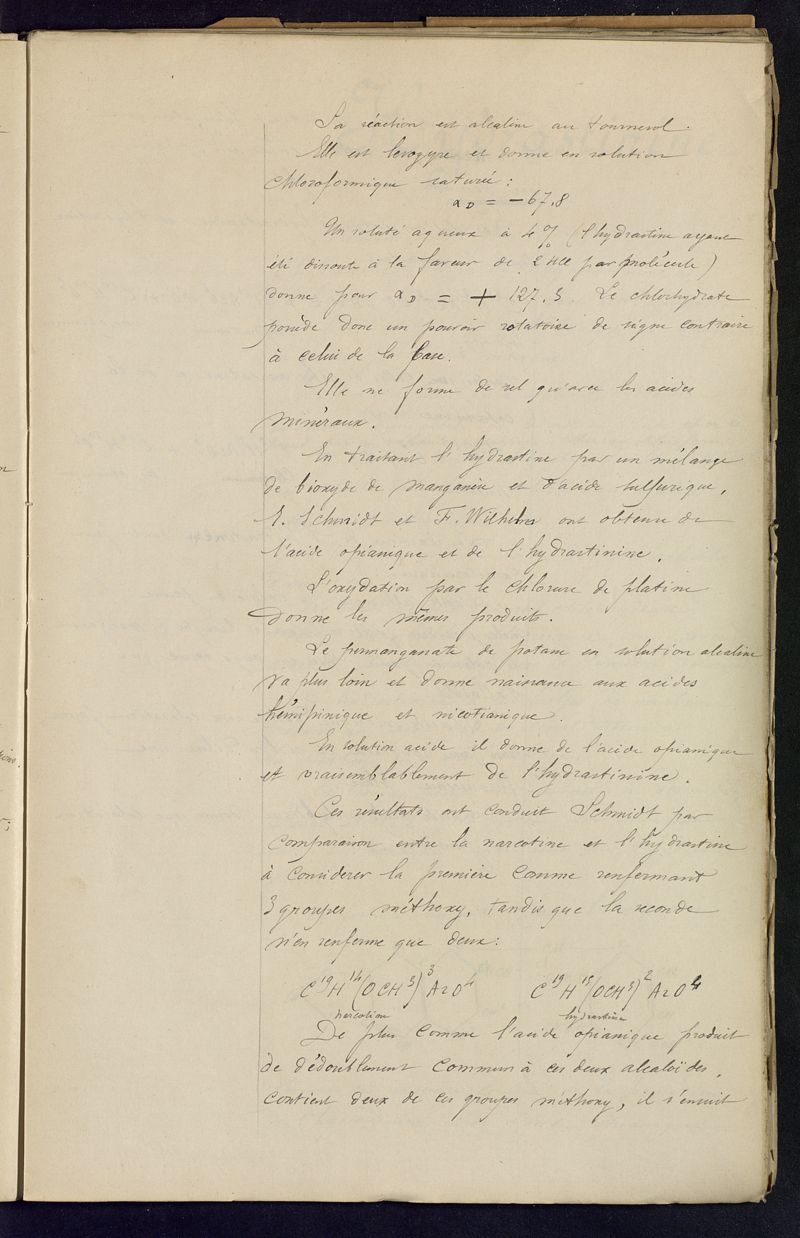 Sa réaction est alcaline au tournesol.
Elle est levogyre et donne en solution
chloroformique saturée :
α D = − 67,8
Un soluté aqueux à 4 % (l'hydrastine ayant
été dissoute à la faveur de 2 HCl par molécule)
donne pour α D = + 127,3. Le chlorhydrate
possède donc un pouvoir rotatoire de signe contraire
à celui de la base.
Elle ne forme de sel qu'avec les acides
minéraux.
En traitant l'hydrastine par un mélange
de bioxyde de manganèse et d'acide sulfurique,
E. Schmidt et F. Wilhelm ont obtenu de
l'acide opianique et de l'hydrastinine.
L'oxydation par le chlorure de platine
donne les mêmes produits.
Le permanganate de potasse en solution alcaline
va plus loin et donne naissance aux acides
hémipinique et nicotianique.
En solution acide il donne de l'acide opianique
et vraisemblablement de l'hydrastinine.
Ces résultats ont conduit Schmidt par
comparaison entre la narcotine et l'hydrastine
à considerer la première comme renfermant
3 groupes méthoxy, tandis que la seconde
n'en renferme que deux :
C¹⁹H¹⁴(OCH³)³AzO⁴ C¹⁹H¹⁵(OCH³)²AzO⁴
narcotine hydrastine
De plus comme l'acide opianique produit
de dédoublement commun à ces deux alcaloïdes,
contient deux de ces groupes méthoxy, il s'ensuit